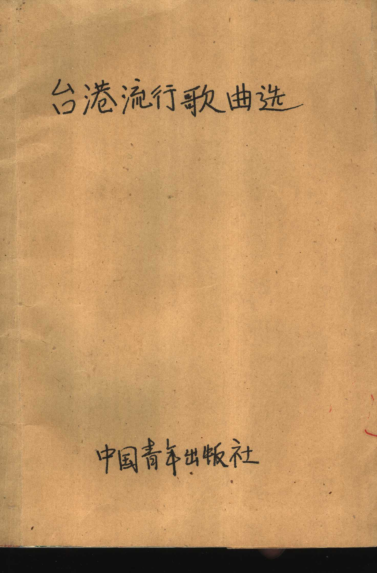 台港流行歌曲选
中国青年出版社